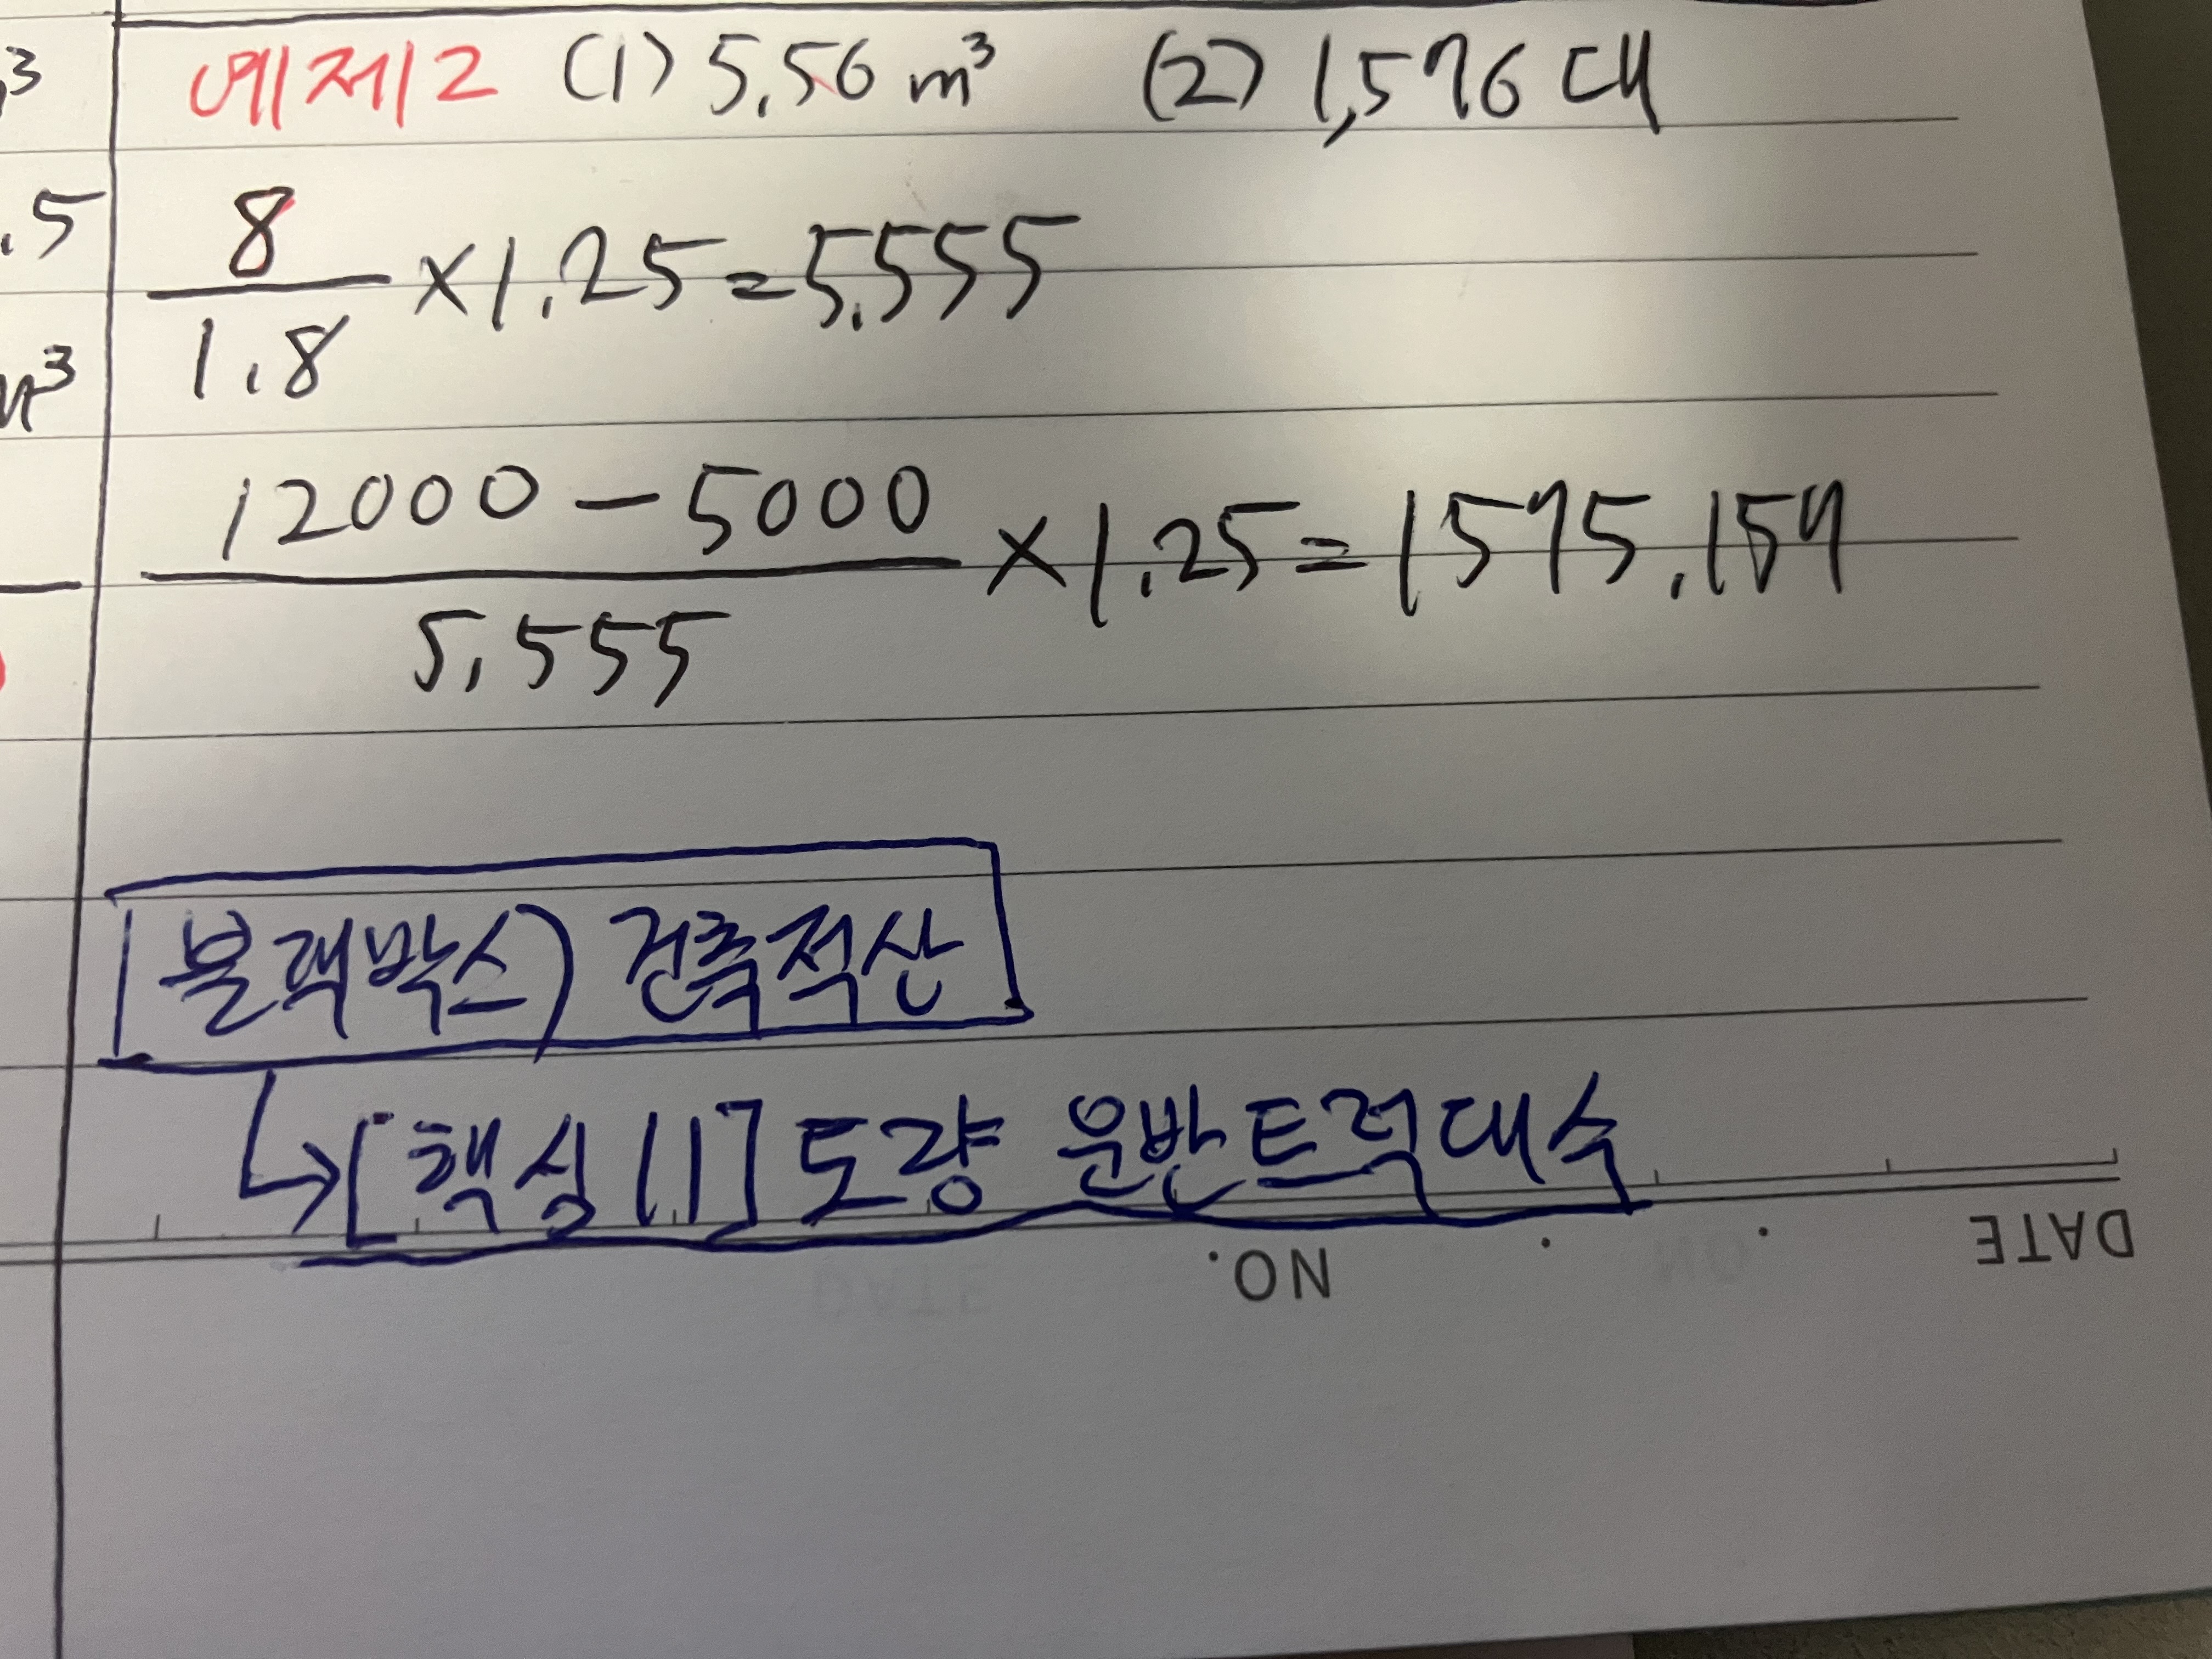 3
.5
m³
예제2 (1) 5.56 m³ (2) 1,576 대
8
1.8
×1.25=5.555
12000-5000
5.555
×1.25=1575.157
블랙박스) 건축적산
→[핵심11] 토량 운반트럭대수
NO.
DATE